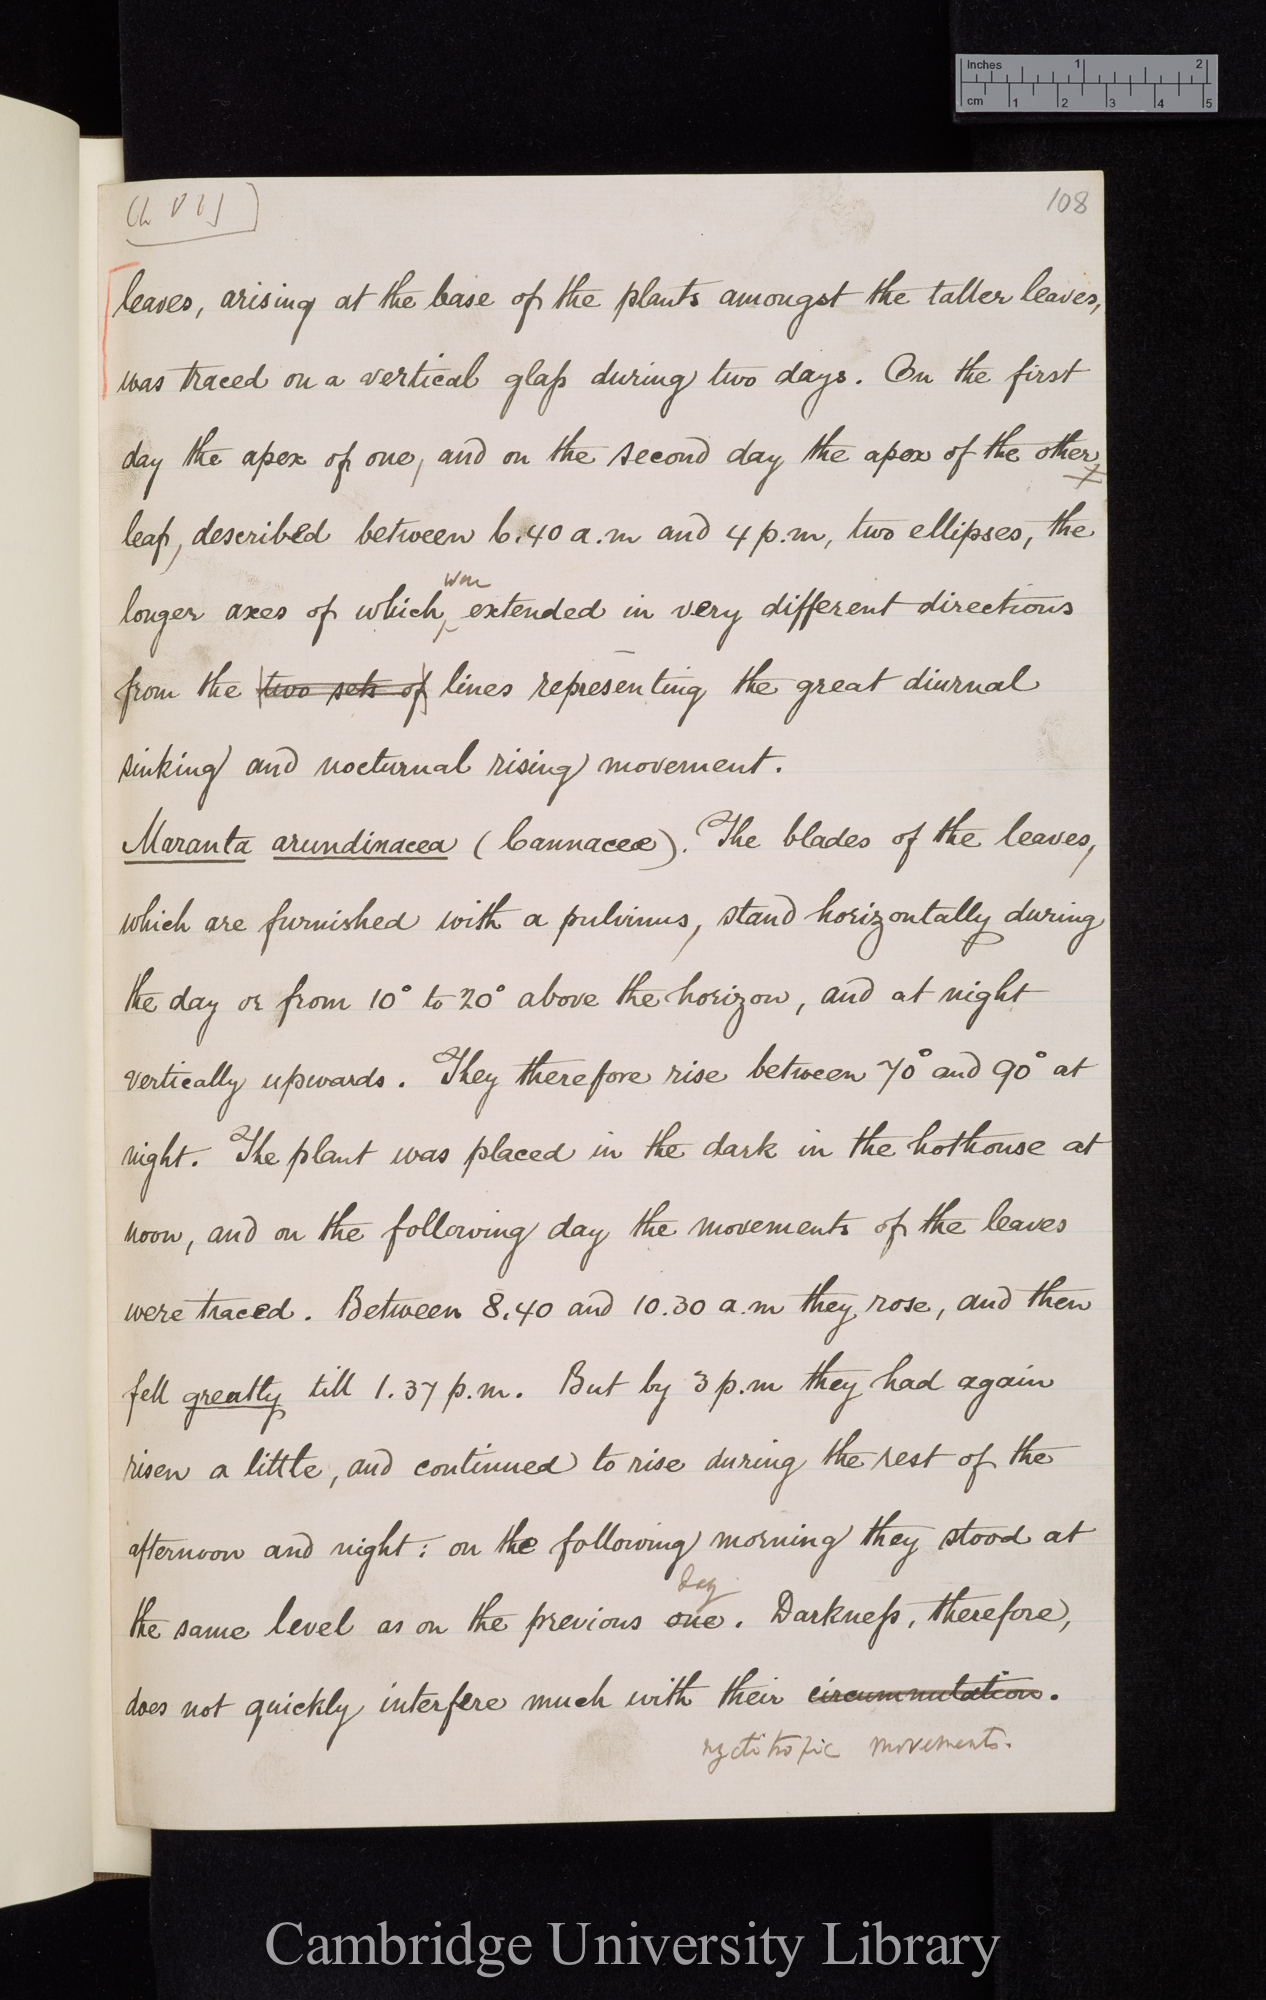 Inches 1 2
cm 1 2 3 4 5
Ch VII
108
leaves, arising at the base of the plants amongst the taller leaves,
was traced on a vertical glass during two days. On the first
day the apex of one, and on the second day the apex of the other
leaf, described between 6.40 a.m and 4 p.m, two ellipses, the
were
longer axes of which extended in very different directions
from the two sets of lines representing the great diurnal
sinking and nocturnal rising movement.
Maranta arundinacea (Cannaceæ). The blades of the leaves,
which are furnished with a pulvinus, stand horizontally during
the day or from 10° to 20° above the horizon, and at night
vertically upwards. They therefore rise between 70° and 90° at
night. The plant was placed in the dark in the hothouse at
noon, and on the following day the movements of the leaves
were traced. Between 8.40 and 10.30 a.m they rose, and then
fell greatly till 1.37 p.m. But by 3 p.m they had again
risen a little, and continued to rise during the rest of the
afternoon and night: on the following morning they stood at
day
the same level as on the previous one. Darkness, therefore,
does not quickly interfere much with their circumnutation.
nyctitropic movements.
Cambridge University Library